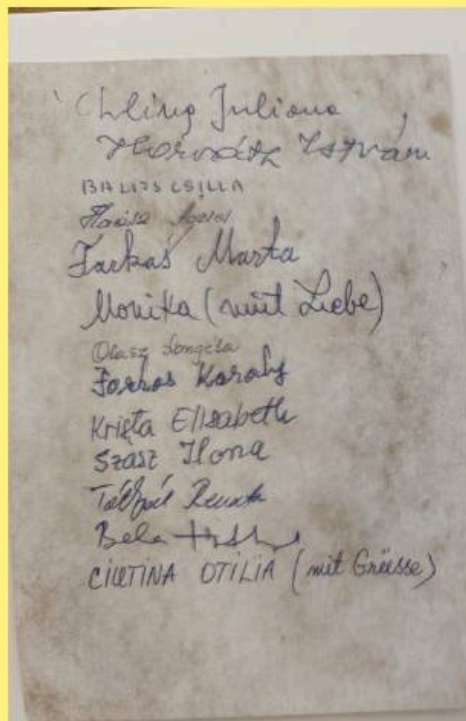 Chling Juliana
Horváth István
BALIZS CSILLA
Farkas Marta
Monika (mit Liebe)
Olasz Angéla
Farkas Karoly
Krista Elisabeth
Szasz Ilona
Renata
Bela
OTILIA (mit Grüsse)